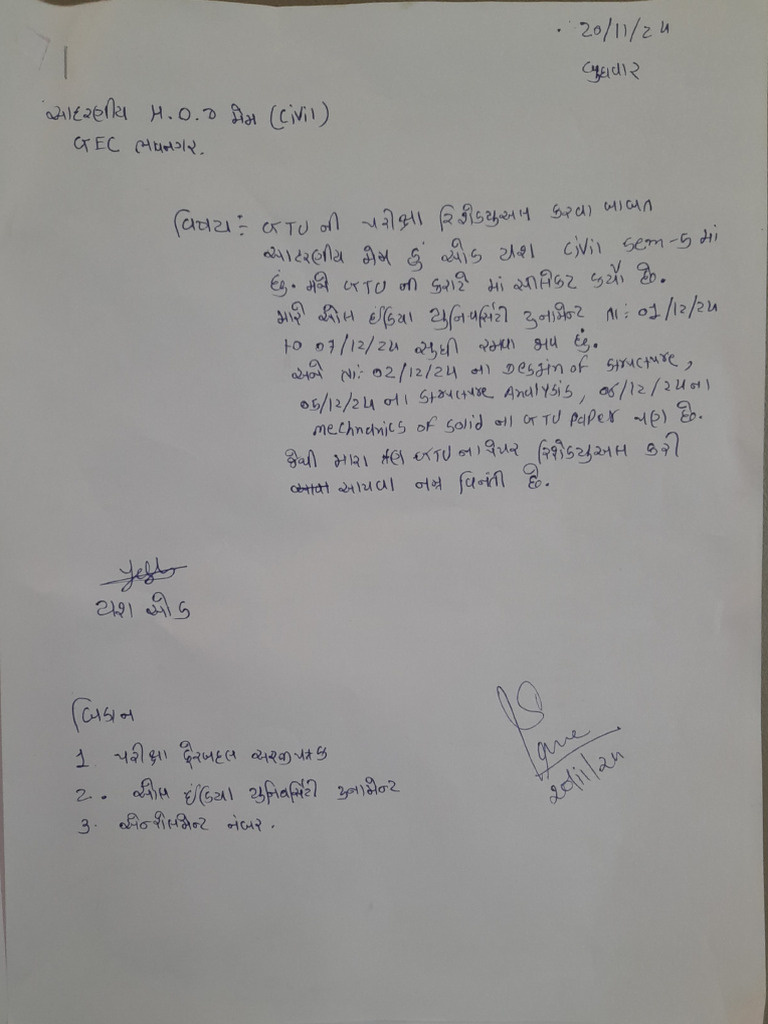 20/11/24
બુધવાર
આદરણીય H.O.D મેમ (Civil)
GEC ભાવનગર.
વિષય:- GTU ની પરીક્ષા રિશેડ્યુઅલ કરવા બાબત
આદરણીય મેમ હું ઓડ યશ Civil sem-5 માં
છું. મને GTU ની કરાટે માં સીલેકટ કર્યો છે.
મારે ઓલ ઈંડિયા યુનિવર્સિટી ટુનામેન્ટ તા: 01/12/24
to 07/12/24 સુધી રમવા જાવ છું.
અને તા: 02/12/24 ના Design of structure,
05/12/24 ના structure Analysis, 06/12/24 ના
mechnanics of solid ના GTU paper પણ છે.
જેથી મારા GTU ના પેપર રિશેડ્યુઅલ કરી
આપવા નમ્ર વિનંતી છે.
યશ ઓડ
બિડાન
1. પરીક્ષા ફેરબદલ અરજીપત્રક
2. ઓલ ઈંડિયા યુનિવર્સિટી ટુનામેન્ટ
3. એનરોલમેન્ટ નંબર.
20/11/24